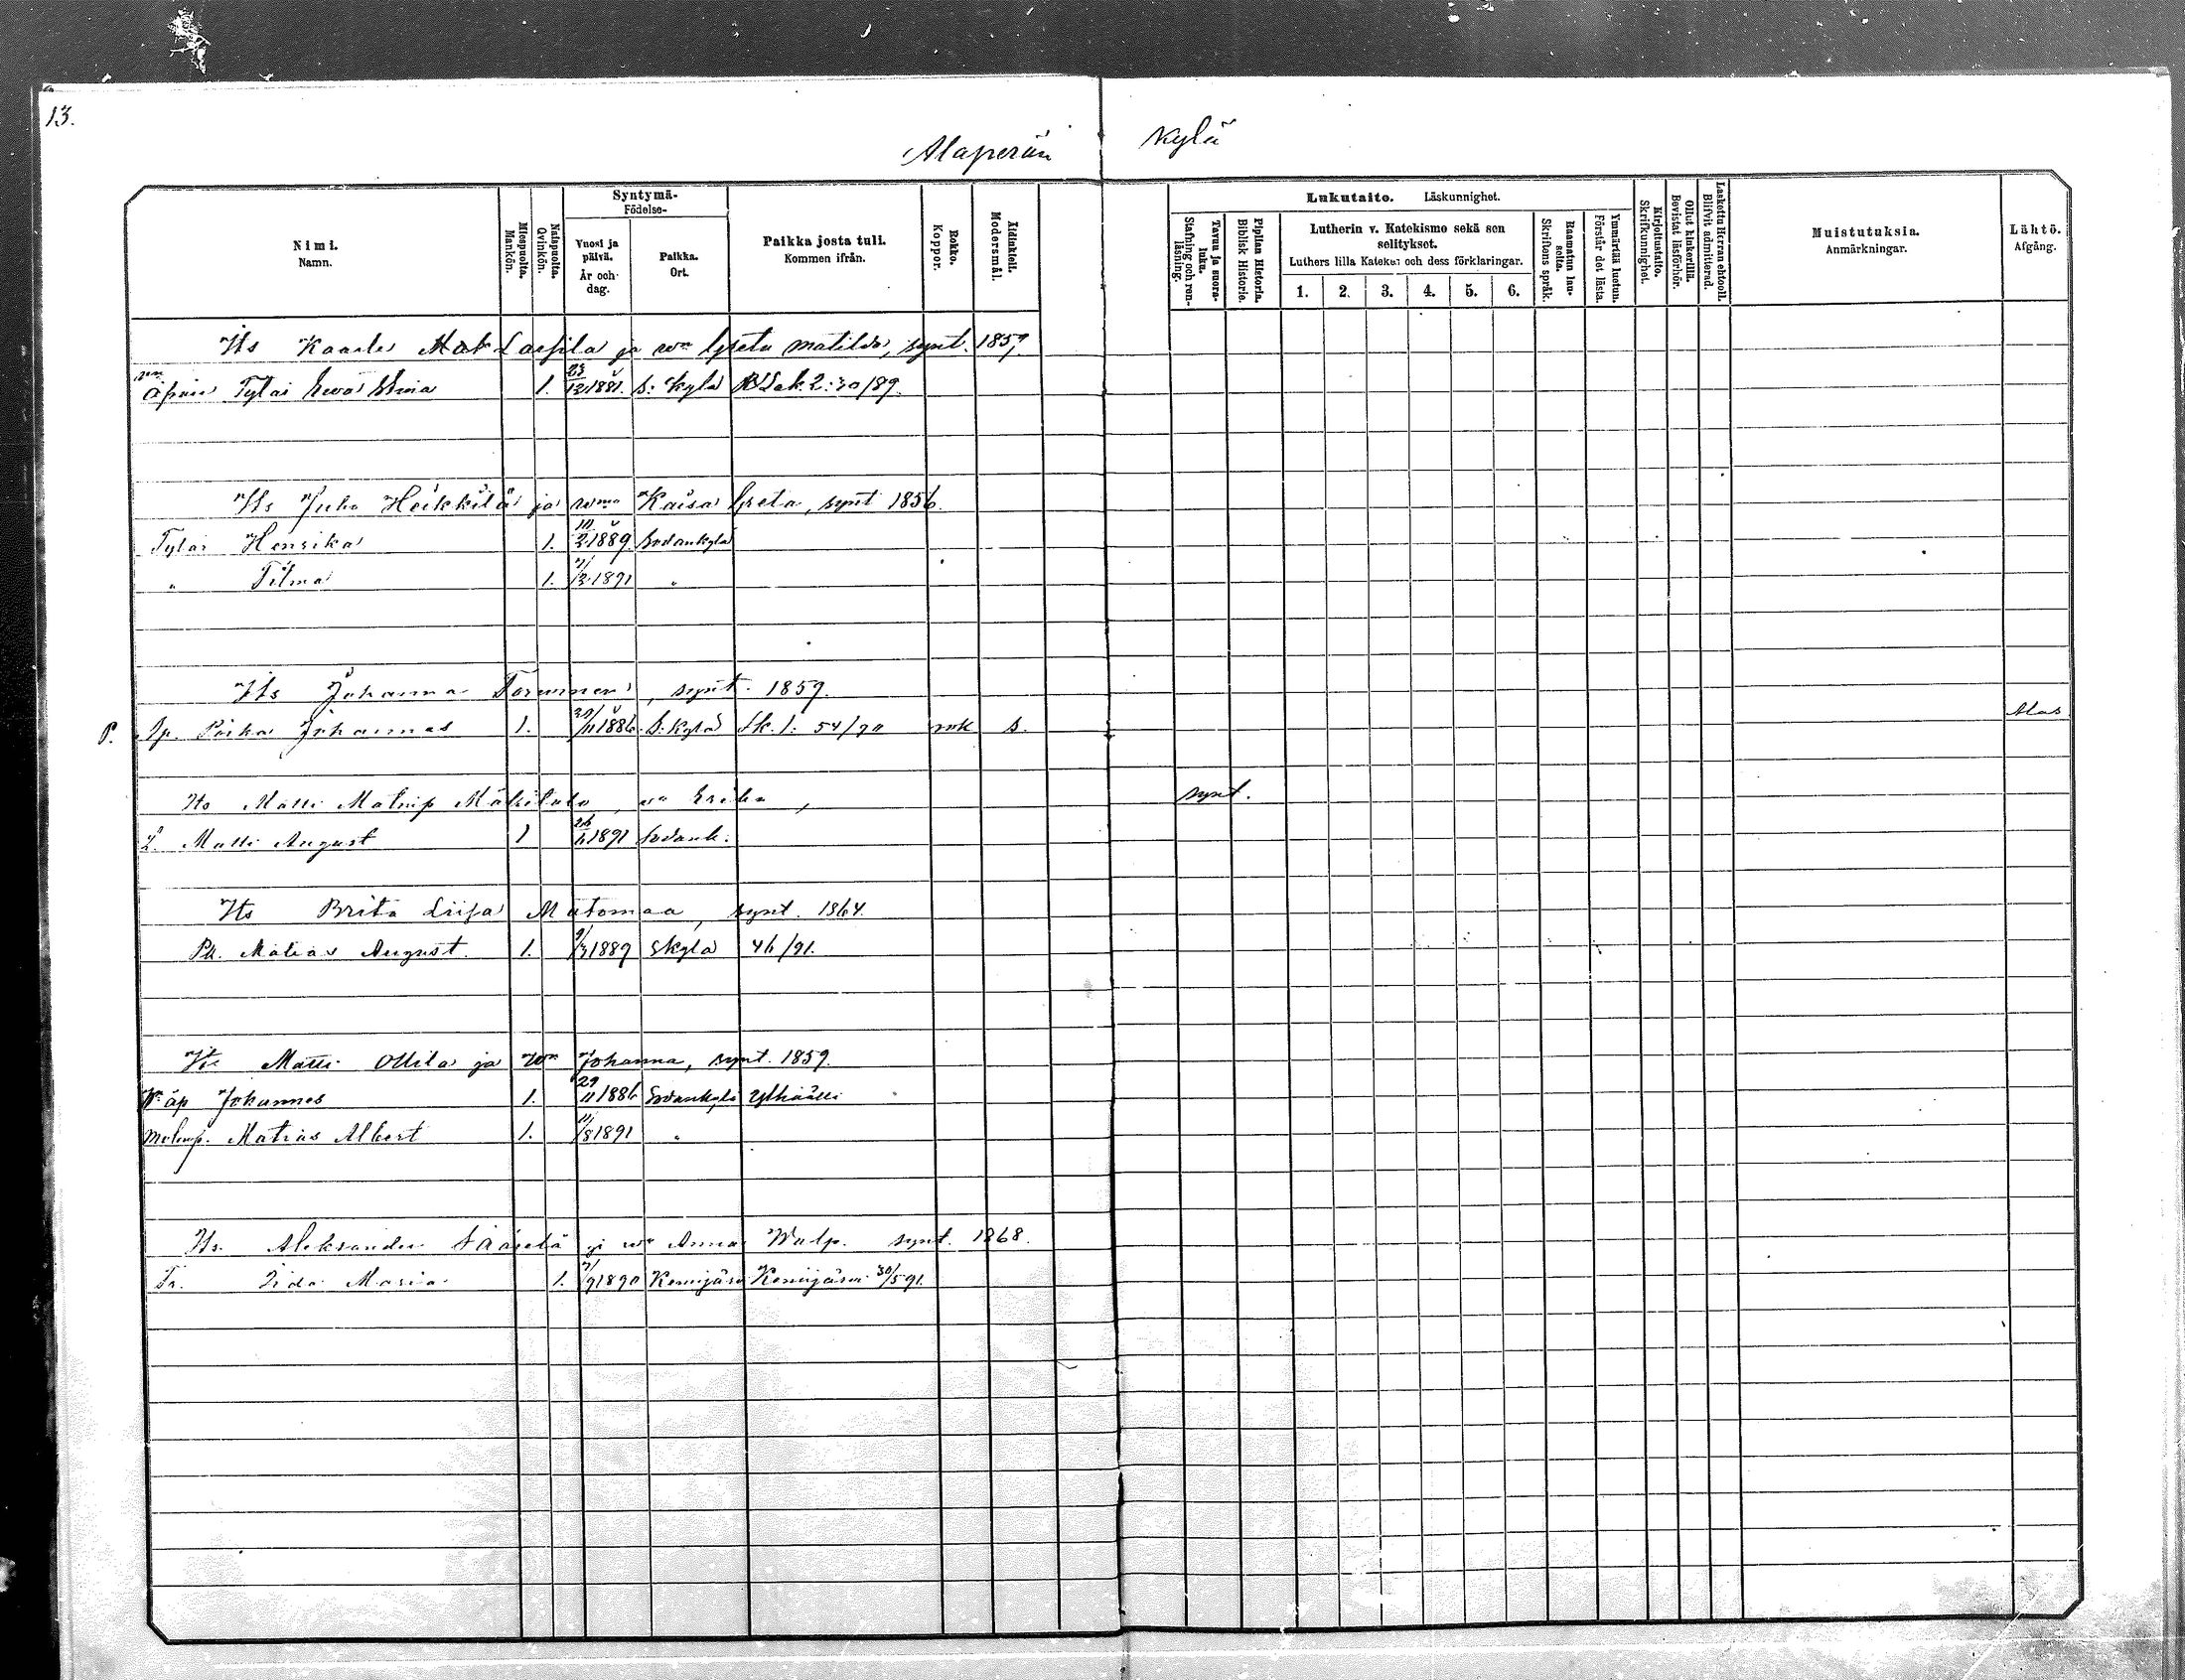 13.
Alaperän kylä
Nimi. Namn.
Miespuolta. Mankön.
Naispuolta. Qvinkön.
Syntymä- Födelse-
Vuosi ja päivä. År och dag.
Paikka. Ort.
Paikka josta tuli. Kommen ifrån.
Rokko. Koppor.
Äidinkieli. Modersmål.
Lukutaito. Läskunnighet.
Tavuu ja suora- luku. Stafning och ren- läsning.
Piplian Historia. Biblisk Historie.
Lutherin v. Katekismo sekä sen selitykset.
Luthers lilla Katekes och dess förklaringar.
1. 2. 3. 4. 5. 6.
Raamatun lau- seita. Skriftens språk.
Ymmärtää luetun. Förstår det lästa.
Kirjoitustaito. Skrifkunnighet.
Ollut kinkerillä. Bevistat läsförhör.
Laskettu Herran ehtooll. Blifvit admitterad.
Muistutuksia. Anmärkningar.
Lähtö. Afgång.
Its Kaarle Laesila ja wm Greta Matilda, synt. 1857
Tytär Ewa 1. 23/12 1881. S:kylä 2:30/89.
Its Juho Heikkilä ja wmo Kaisa Greta, synt 1856.
Tytär Henrika 1. 1889 Sodankylä
" Tilma 1. 1891 "
Its Johanna Torvinen, synt. 1859.
P. Äp. Poika Johannes 1. 1886. S:kylä Lk. 1: 54/90 rok s. Alas
Its Matti Matinp Mäkitalo, wa Erika, synt.
L. Matti August 1 26/6 1891 Sodank:
Its Brita Liisa Mutomaa, synt. 1864.
Pk. Matias August. 1. 9/3 1889 Skylä 46/91.
Its Matti Ollila ja Wm Johanna, synt. 1859.
W. äp Johannes 1. 29/11 1886 Sodankylä
Matias Albert 1. 11/8 1891 "
Its. Aleksander Säärelä ja wa Anna Walp. synt. 1868.
Tr. Iida Maria 1. 7/9 1890 Kemijärvi Kemijärvi 30/5 91.